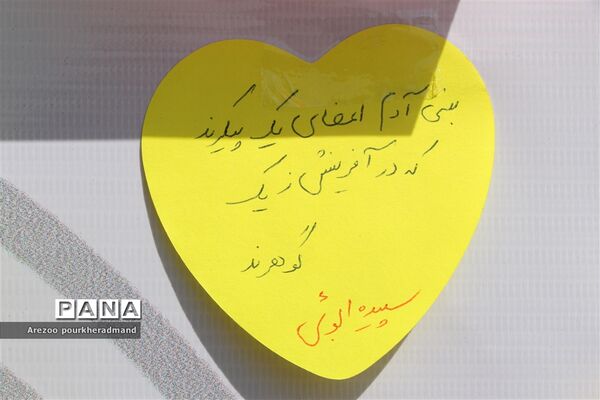 بنی آدم اعضای یک پیکرند
که در آفرینش ز یک
گوهرند
سپیده البوئی
PANA
Arezoo pourkheradmand